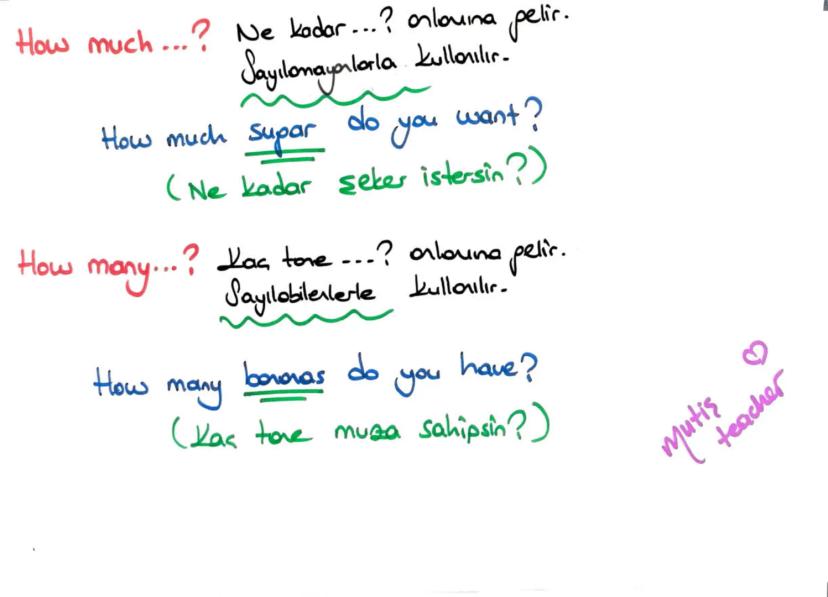 How much...? Ne kadar...? anlamına gelir.
Sayılamayanlarla kullanılır.
How much sugar do you want?
(Ne kadar şeker istersin?)
How many...? Kaç tane ...? anlamına gelir.
Sayılabilenlerle kullanılır.
How many bananas do you have?
(Kaç tane muza sahipsin?)
Mutiş teacher